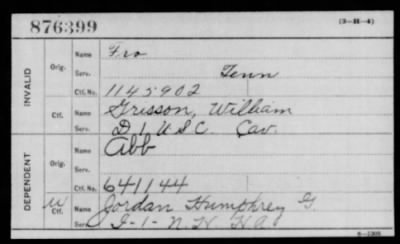 876399
(3-H-4)
INVALID
Orig.
Name Fro
Serv. Tenn
Ctf. No. 1145902
Ctf.
Name Grisson, William
Serv. D 1 U S C. Cav.
DEPENDENT
Orig.
Name Abb
Serv.
Ctf. No. 641144
W
Ctf.
Name Jordan Humphrey G
Serv. I-1-N.H. H A